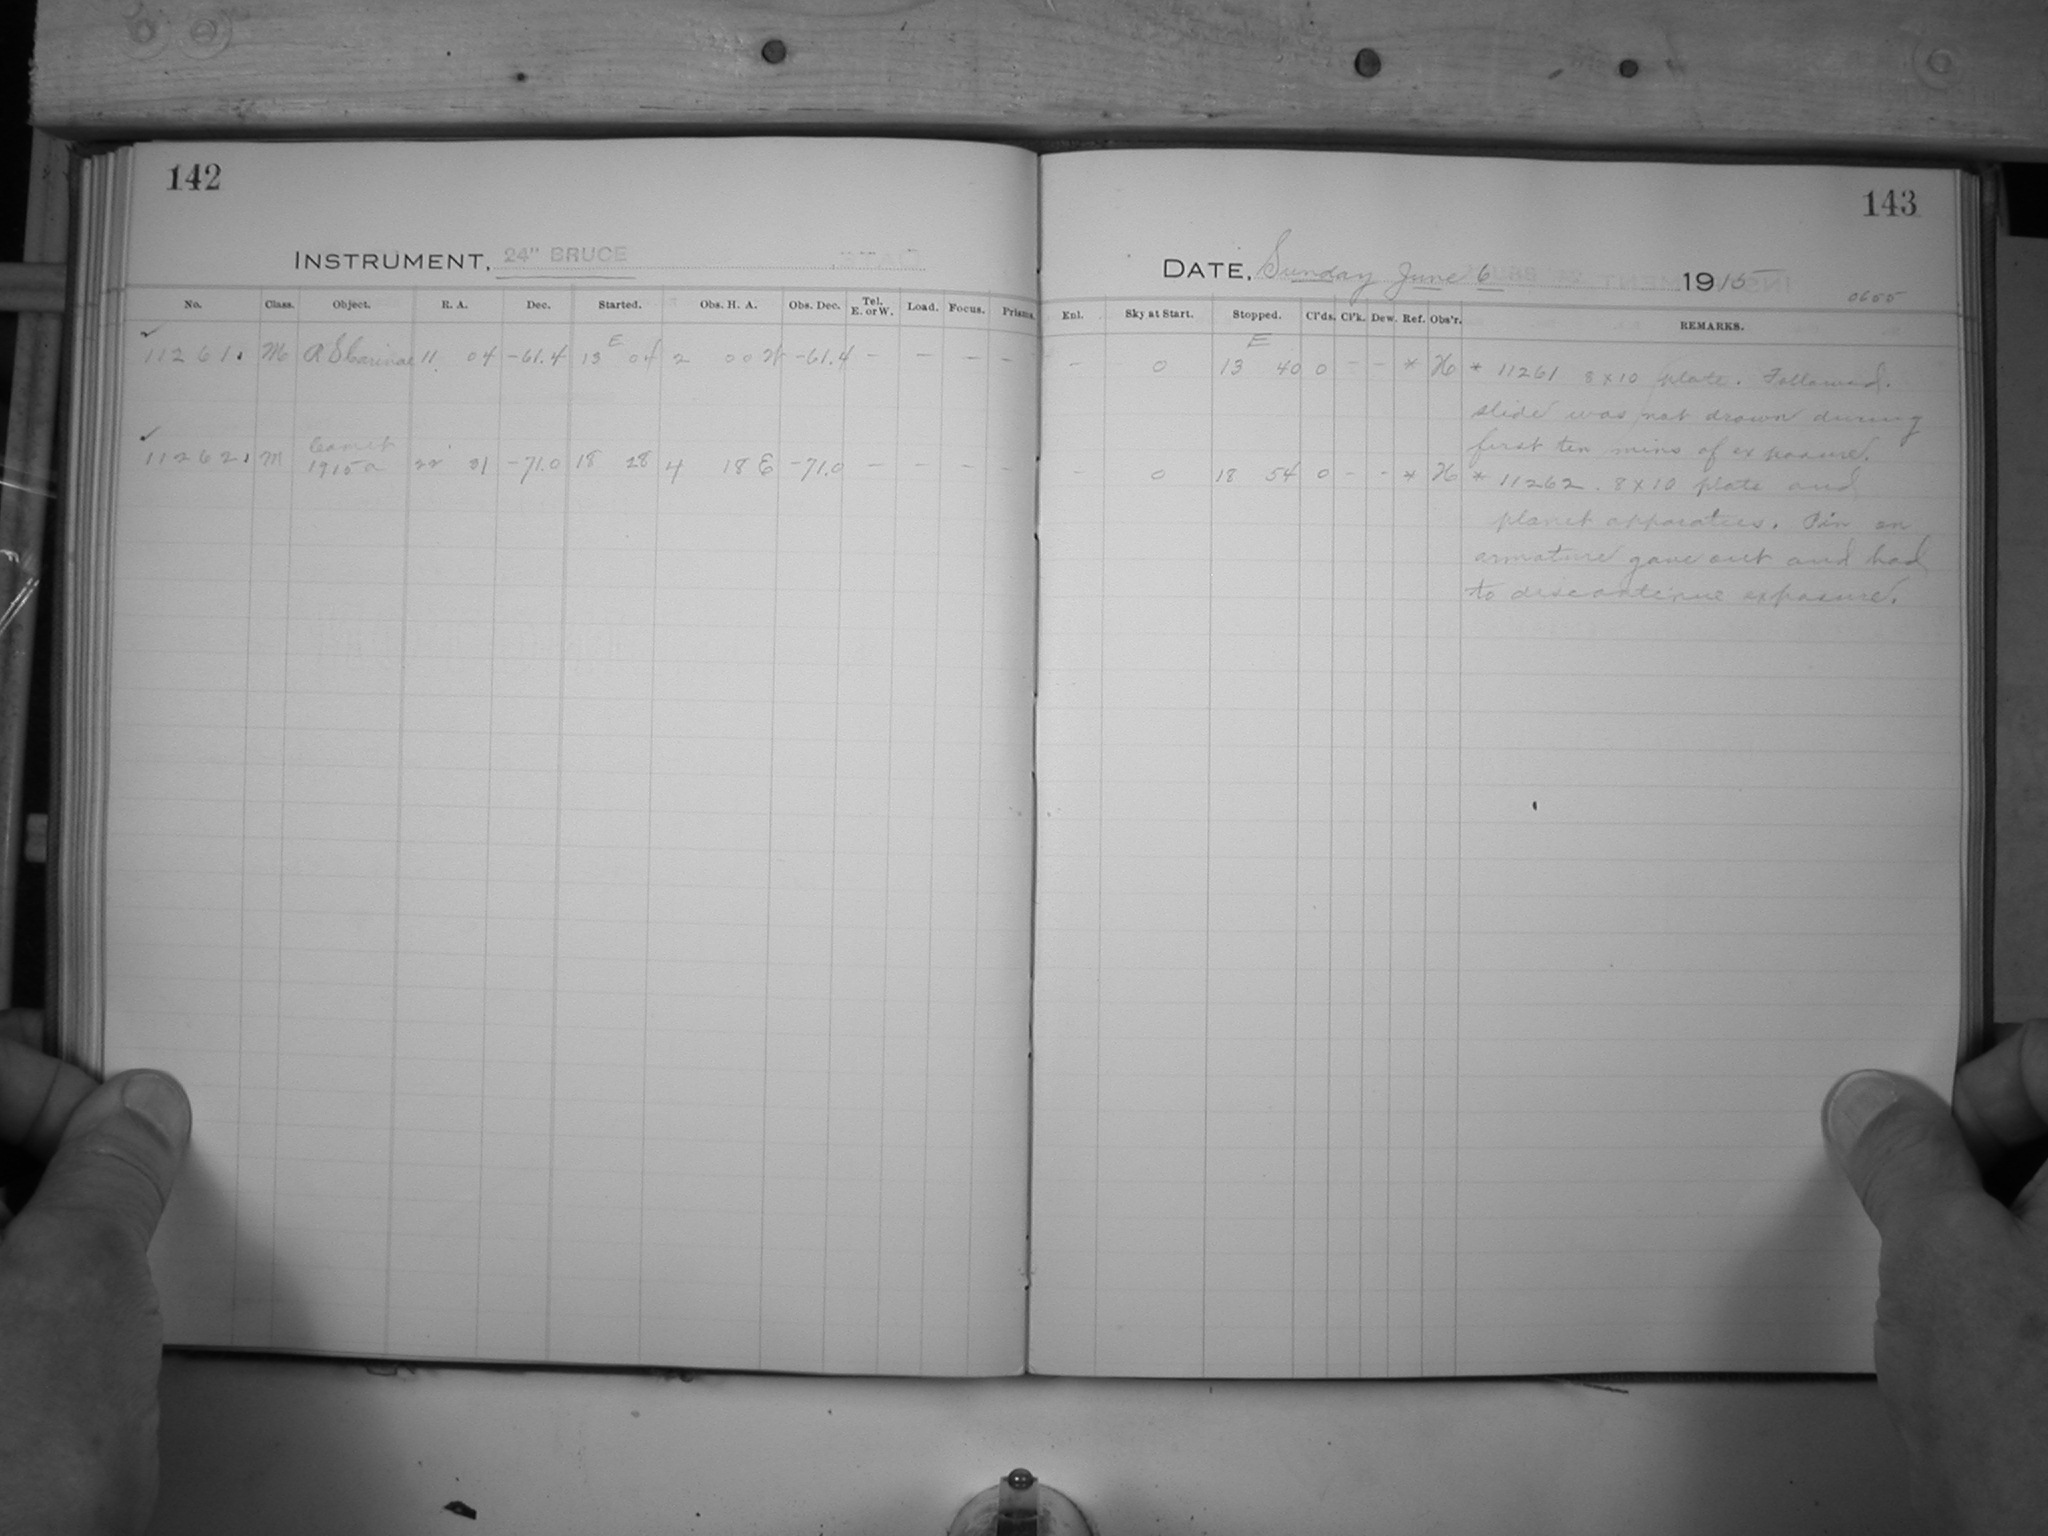 142
INSTRUMENT, 24" BRUCE
No. Class. Object. R. A. Dec. Started. Obs. H. A. Obs. Dec. Tel. E. or W. Load. Focus. Prisms.
11261. M RS Carinae 11 04 -61.4 13 E 04 2 00 W -61.4 - - - -
11262. M Comet 1915a 22 21 -71.0 18 28 4 18 E -71.0 - - - -
143
DATE, Sunday June 6 1915
0655
Enl. Sky at Start. Stopped. Cl'ds. Cl'k. Dew. Ref. Obs'r. REMARKS.
- 0 13 E 40 0 - - * H * 11261 8 x 10 plate. Followed.
slide was not drawn during
first ten mins of exposure.
- 0 18 54 0 - - * H * 11262. 8 x 10 plate and
planet apparatus. Pin on
armature gave out and had
to discontinue exposure.